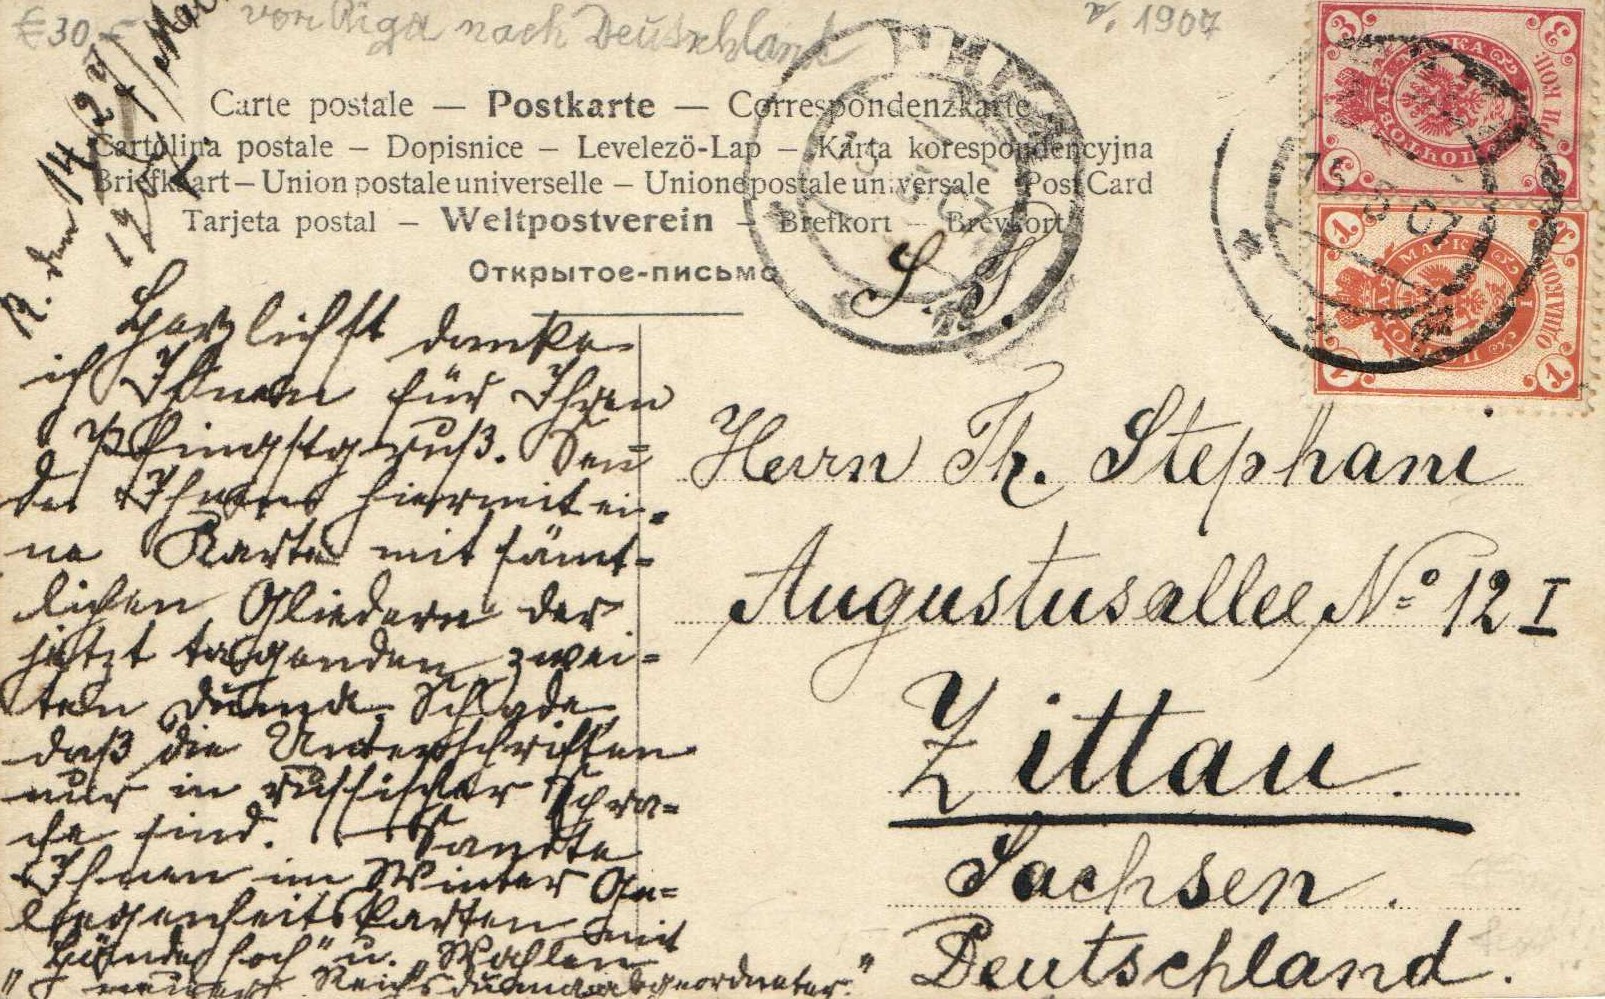 €30,-
von Riga nach Deutschland
1907
Carte postale — Postkarte — Correspondenzkarte
Cartolina postale – Dopisnice – Levelezö-Lap – Karta korespondencyjna
Briefkaart – Union postale universelle – Unione postale universale Post Card
Tarjeta postal – Weltpostverein – Brefkort – Brevkort
Открытое-письмо
РИГА
3 МАРКА 3
1 МАРКА 1
15 5 07
R. den 14/27
Herzlichst danke
ich Ihnen für Ihren
Pfingstgruß. Sen-
de Ihnen hiermit ei-
ne Karte mit sämt-
lichen Gliedern der
jetzt tagenden zwei-
ten Duma. Schade
daß die Unterschriften
nur in russischer Spra-
che sind. Sandte
Ihnen im Winter Ge-
legenheitskarten mit
"Hände hoch" u. "Wahlen
Reichsdumaabgeordneter."
S. T.
Herrn Th. Stephani
Augustusallee No 12 I
Zittau.
Sachsen.
Deutschland.